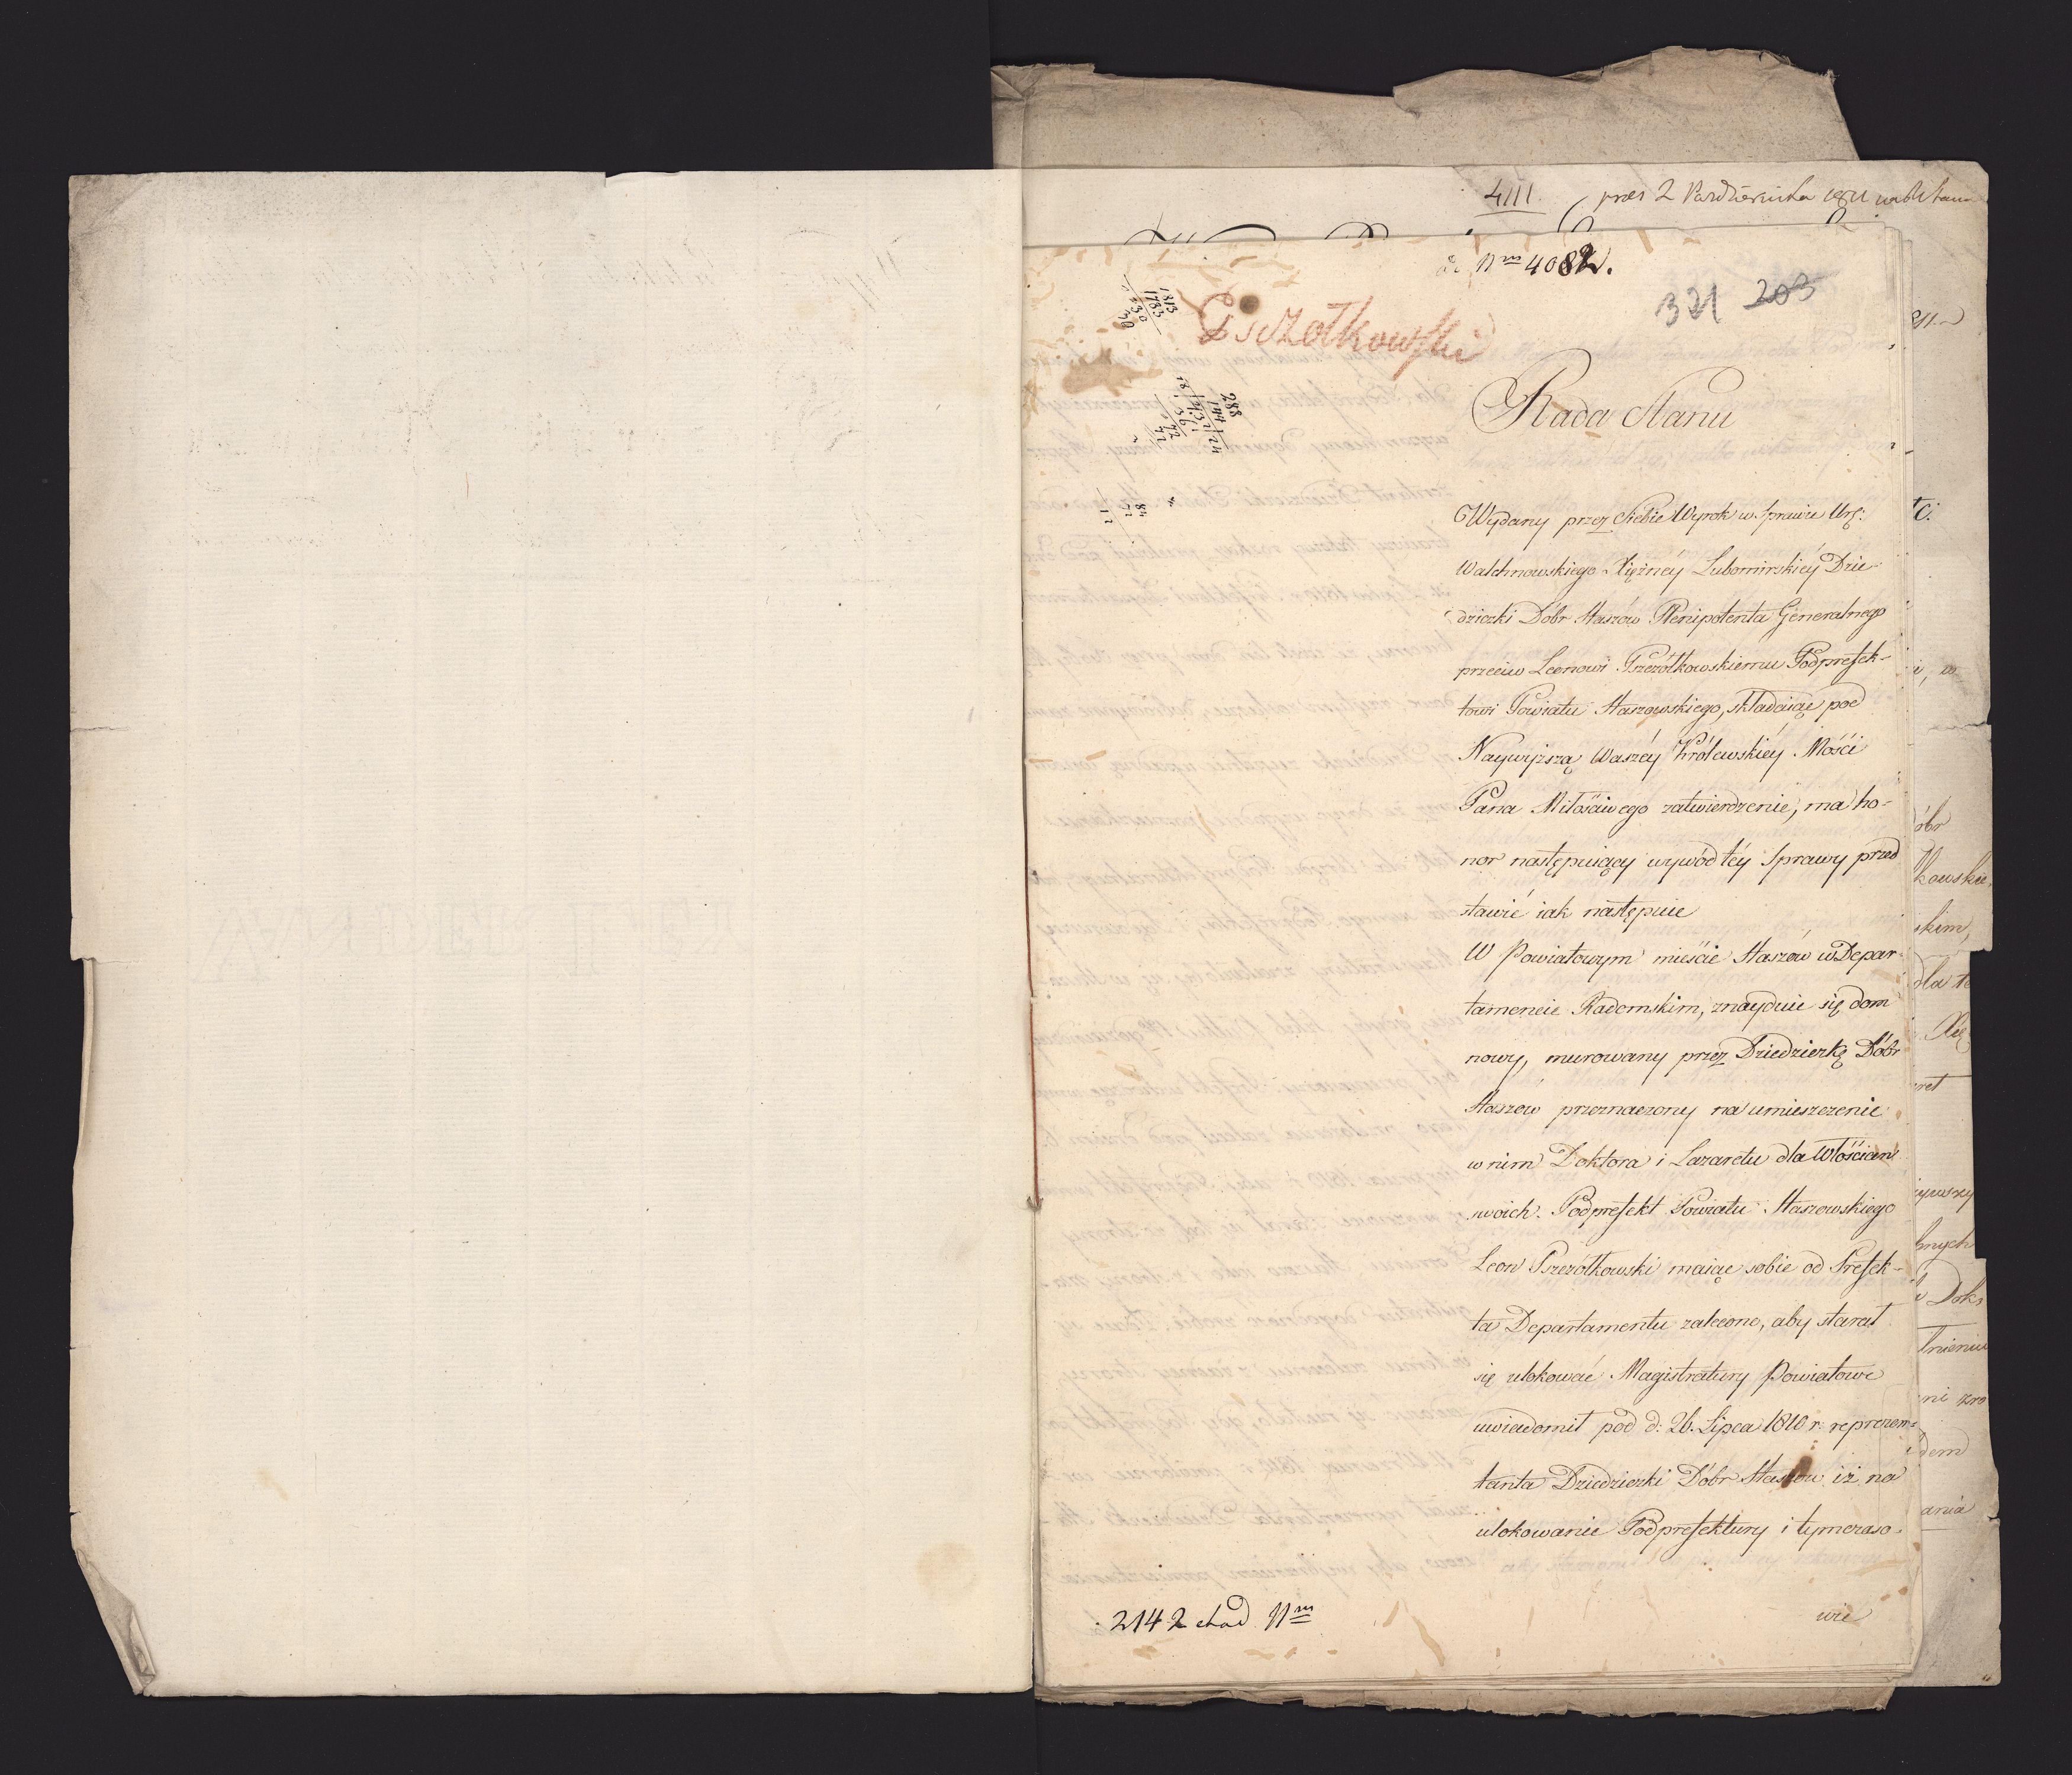 4111. pres 2 Października 1811
ad Nm 4082.
321 203
1813
1783
30
Pszczołkowski
288
144
Rada Stanu
84
72
12
Wydany przez Siebie Wyrok w Sprawie Urg:
Walchnowskiego Xiężnéy Lubomirskiéy Dzie-
dziczki Dóbr Staszów Plenipotenta Generalnego
przeciw Leonowi Pszczółkowskiemu Podprefek-
towi Powiatu Staszowskiego, składaiąc pod
Naywyższą Waszéy Królewskiéy Mości
Pana Miłościwego zatwierdzenie, ma ho-
nor następuiący wywód téy Sprawy przed
stawić iak następuie
W Powiatowym mieście Staszów w Depar-
tamencie Radomskim, znayduie się dom
nowy, murowany przez Dziedziczkę Dóbr
Staszów przeznaczony na umieszczenie
w nim Doktora i Lazaretu dla Włościan
swoich. Podprefekt Powiatu Staszowskiego
Leon Pszczółkowski maiąc sobie od Prefek-
ta Departamentu zalecone, aby starał
się ulokować Magistratury Powiatowe
uwiadomił pod d: 26. Lipca 1810 r: reprezen-
tanta Dziedziczki Dóbr Staszów iż na
ulokowanie Podprefektury i tymczaso-
wie
2142 ad Nm